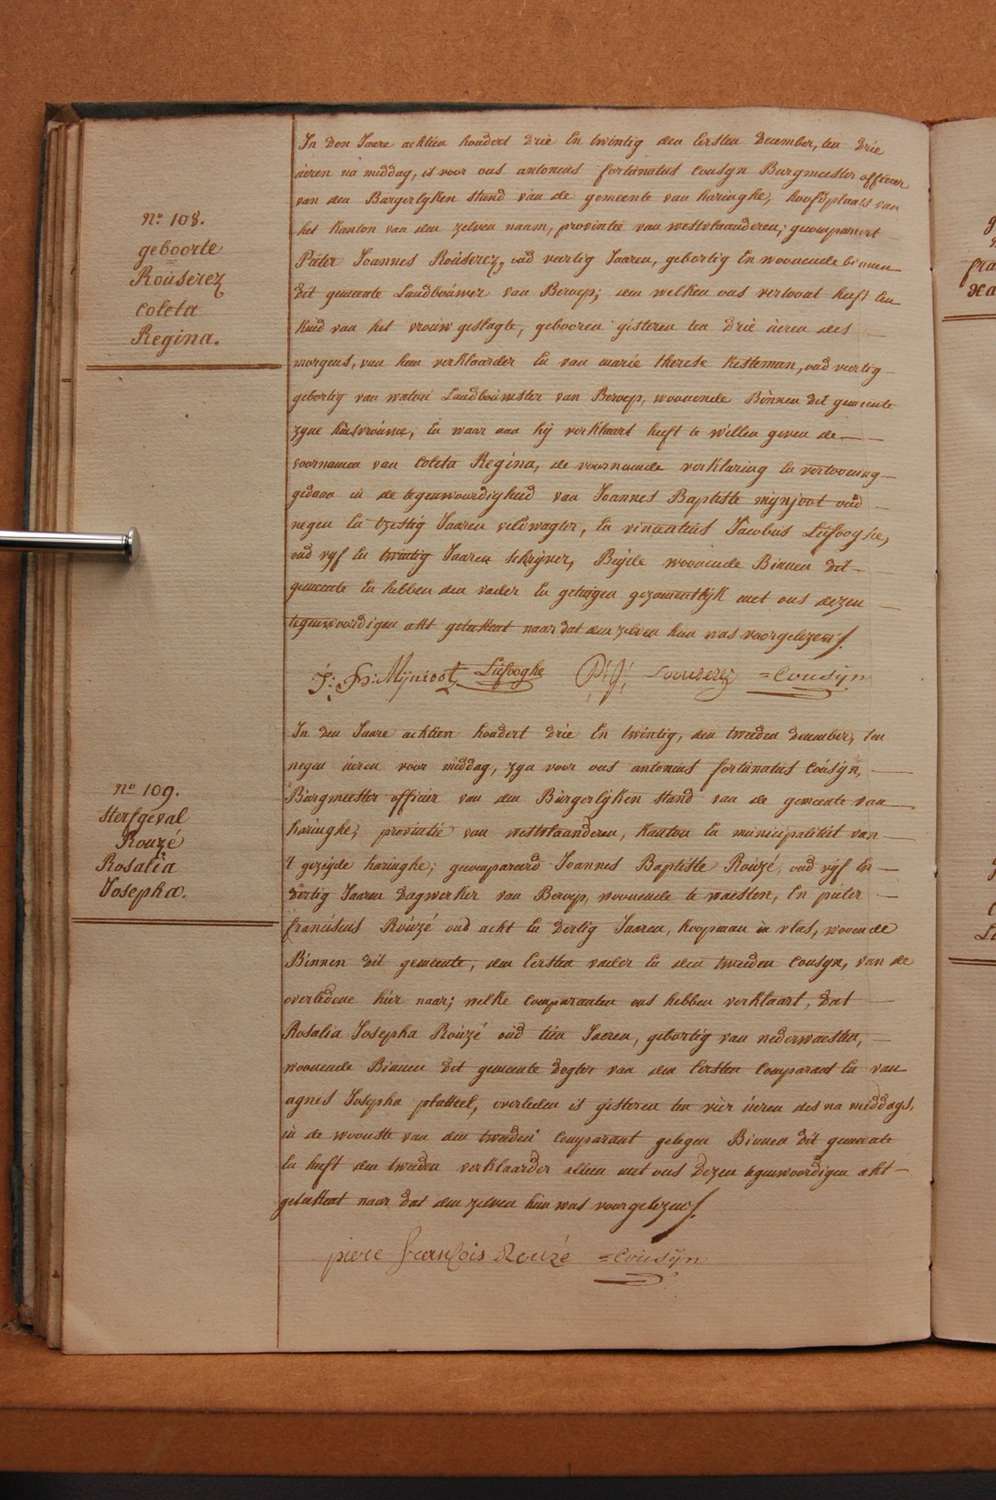 N.º 108.
geboorte
Roúserez
coleta
Regina.
In den Jaare achtien hondert drie En twintig den Eersten december, ten drie
úeren na middag, is voor ons antonius fortúnatus Cousyn Burgmeester officier
van den Bargerlyken stand van de gemeente van haringhe, hoofdplaats van
het Kanton van den zelven naam, provintie van westvlaanderen; gecompareert
Pieter Joannes Roúserez, oud veertig Jaaren, gebortig En woonende binnen
dit gemeente Landboúwer van Beroep; den welken ons vertoont heeft Een
Kind van het vrouw geslagte, gebooren gisteren ten drie úeren des
morgens, van hem verklaarder En van marie therese Kesteman, oud veertig
gebortig van watoú Landboúwster van Beroep, woonende Binnen dit gemeente
zyne húisvroúwe, En waar aan hij verklaart heeft te willen geven de
voornamen van Coleta Regina, de voornoemde verklaring En vertooning
gedaan in de tegenwoordigheid van Joannes Baptiste mynjoot oud
negen En tzestig Jaaren veldwagter, En vincentius Jacobus Liefooghe,
oud vyf En twintig Jaaren schryver, Beyde woonende Binnen dit
gemeente En hebben den vader En getuigen gezamentlyk met ons dezen
tegenwoordigen akt geteekent naar dat den zelven hun was voorgelezen/.
J: B: Mijnioot Liefooghe P: J: rouserez = Cousijn
N.º 109.
Sterfgeval
Rouzé
Rosalia
Josepha.
In den Jaare achtien hondert drie En twintig, den tweeden december, ten
negen úeren voor middag, zyn voor ons antonius fortúnatus Coúsyn,
Búrgmeester officier van den Búrgerlyken stand van de gemeente van
haringhe, provintie van westvlaanderen, Kanton En municipaliteit van
't gezeyde haringhe; gecompareerd Joannes Baptiste Roúzé, oud vyf En
dertig Jaaren dagwerker van Beroep, woonende te waesten, En pieter
franciscus Roúzé oud acht En dertig Jaaren, Koopman in vlas, woonde
Binnen dit gemeente, den Eersten vader En den tweeden Cousyn, van de
overledene hier naar; welke comparanten ons hebben verklaart, dat
Rosalia Josepha Roúzé oúd tien Jaeren, gebortig van nederwaesten,
woonende Binnen dit gemeente dogter van den Eersten Comparant En van
agnes Josepha platteel, overleden is gisteren ten vier úeren des na middags,
in de woonste van den tweeden Comparant gelegen Binnen dit gemeente
En heeft den tweeden verklaarder alleen met ons dezen tegenwoordigen akt
geteekent naar dat den zelven hún was voorgelezen/.
piere francois Rouzé = Coúsijn